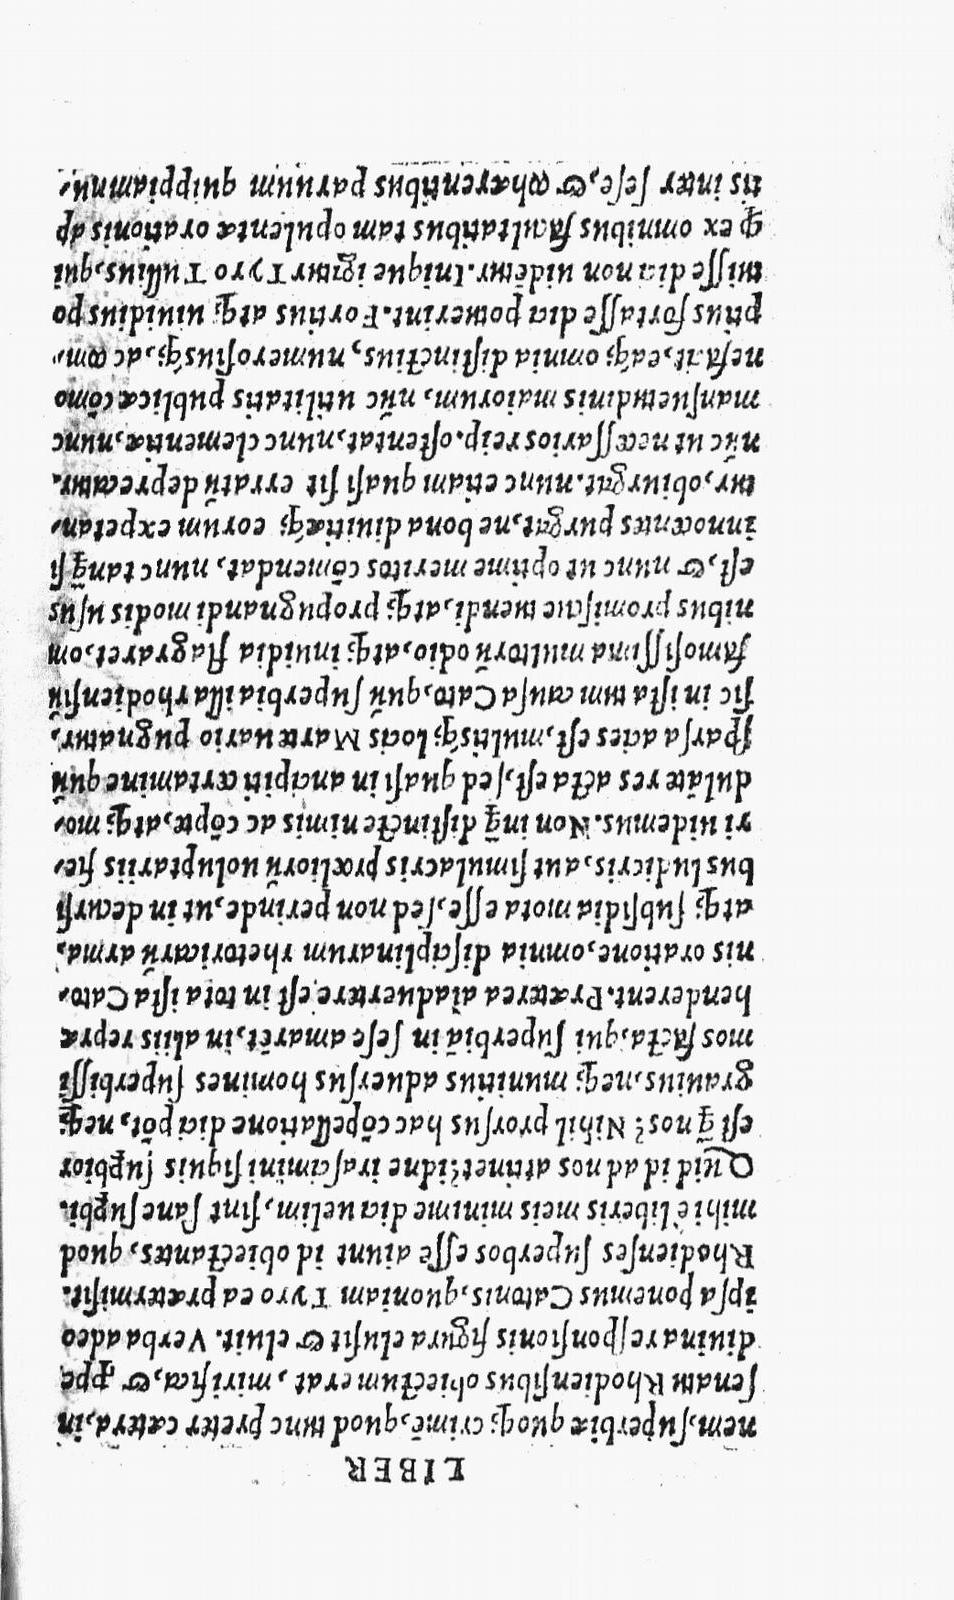 LIBER
nem, superbiæ quoq; crimē, quod tunc preter cætera, in
senatu Rhodiensibus obiectum erat, mirifica, & ꝓpe
diuina responsionis figura elusit & eluit. Verba adeo
ipsa ponemus Catonis, quoniam Tyro ea prætermisit.
Rhodienses superbos esse aiunt id obiectantes, quod
mihi è liberis meis minime dici uelim, sint sane supbi.
Quid id ad nos attinet? idne irascimini siquis supbior
est q̃ nos? Nihil prorsus hac cōpellatione dici pōt, neq;
grauius, neq; munitius aduersus homines superbissi
mos facta, qui superbiā in sese amarēt, in aliis repræ
henderent. Præterea aīaduertere est in tota ista Cato-
nis oratione, omnia disciplinarum rhetoricarū arma,
atq; subsidia mota esse, sed non perinde, ut in decursi
bus ludicris, aut simulacris prælìorū uoluptariis fie-
ri uidemus. Non inq̃ distincte nimis ac cōpte, atq; mo-
dulāte res acta est, sed quasi in ancipiti certamine quū
sparsa acies est, multisq; locis Marte uario pugnatur,
sic in ista tum causa Cato, quū superbia illa rhodiensiū
famosissima multorū odio, atq; inuidia flagraret, om
nibus promiscue tuendi, atq; propugnandi modis usus
est, & nunc ut optime meritos cōmendat, nunc tanq̃ si
innocentes purgat, ne bona diuitiæq; eorum expetan-
tur, obiurgat. nunc etiam quasi sit erratū deprecatur.
nūc ut necessarios reip. ostentat, nunc clementiæ, nunc
mansuetudinis maiorum, nūc utilitatis publicæ cōmo
nefacit, eaq; omnia distinctius, numerosiusq;, ac com-
ptius fortasse dici potuerint. Fortius atq; uiuidius po
tuisse dici non uidetur. Inique igitur Tyro Tullius, qui
ꝙ ex omnibus facultatibus tam opulentæ orationis ap
tis inter sese, & cohærentibus paruum quippiam nu-